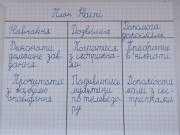 План Наталі
Навчання
Дозвілля
Допомога дорослим
Виконати домашнє завдання
Погратися з сестричкою
Прибрати в кімнаті
Прочитати з мамою оповідання
Подивитись мультики по телевізору
Допомогти мамі з сестричками